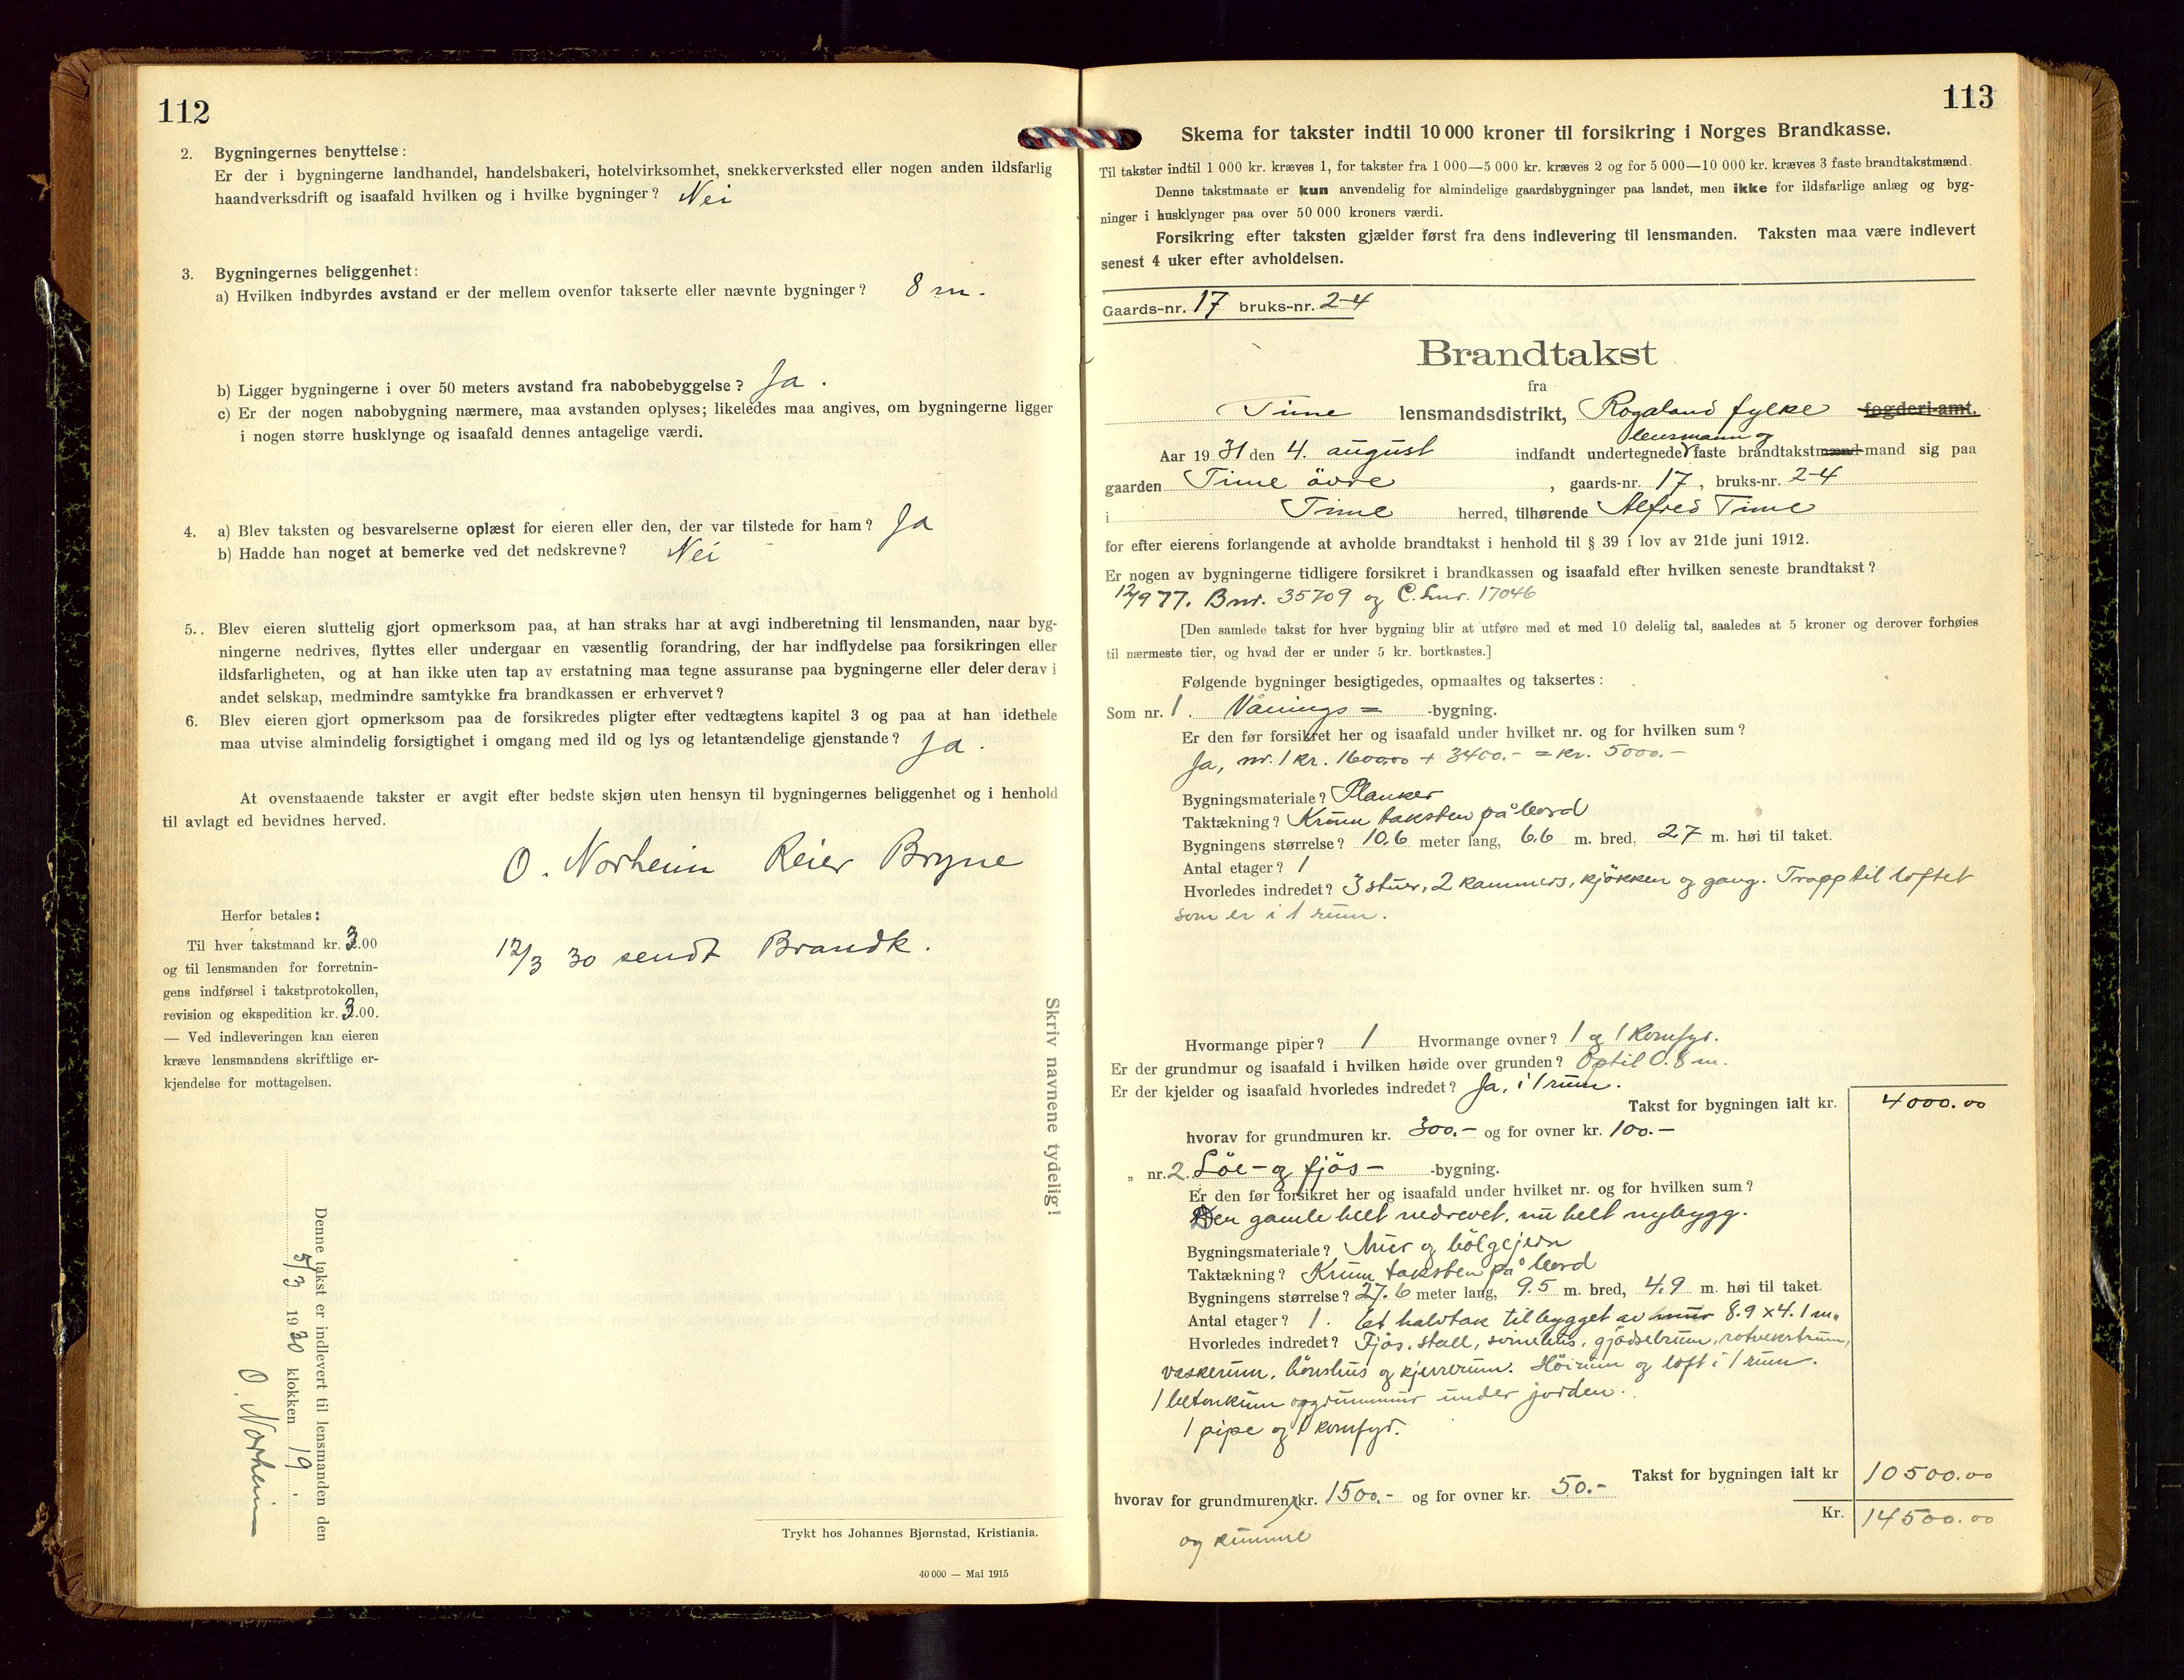 112
2. Bygningernes benyttelse:
Er der i bygningerne landhandel, handelsbakeri, hotelvirksomhet, snekkerverksted eller nogen anden ildsfarlig
haandverksdrift og isaafald hvilken og i hvilke bygninger? Nei
3. Bygningernes beliggenhet:
a) Hvilken indbyrdes avstand er der mellem ovenfor takserte eller nævnte bygninger? 8 m.
b) Ligger bygningerne i over 50 meters avstand fra nabobebyggelse? Ja.
c) Er der nogen nabobygning nærmere, maa avstanden oplyses; likeledes maa angives, om bygningerne ligger
i nogen større husklynge og isaafald dennes antagelige værdi.
4. a) Blev taksten og besvarelserne oplæst for eieren eller den, der var tilstede for ham? Ja
b) Hadde han noget at bemerke ved det nedskrevne? Nei
5.. Blev eieren sluttelig gjort opmerksom paa, at han straks har at avgi indberetning til lensmanden, naar byg-
ningerne nedrives, flyttes eller undergaar en væsentlig forandring, der har indflydelse paa forsikringen eller
ildsfarligheten, og at han ikke uten tap av erstatning maa tegne assuranse paa bygningerne eller deler derav i
andet selskap, medmindre samtykke fra brandkassen er erhvervet?
6. Blev eieren gjort opmerksom paa de forsikredes pligter efter vedtægtens kapitel 3 og paa at han idethele
maa utvise almindelig forsigtighet i omgang med ild og lys og letantændelige gjenstande? Ja.
At ovenstaaende takster er avgit efter bedste skjøn uten hensyn til bygningernes beliggenhet og i henhold
til avlagt ed bevidnes herved.
O. Norheim Reier Bryne
12/3 30 sendt Brandk.
Herfor betales:
Til hver takstmand kr. 3.00
og til lensmanden for forretnin-
gens indførsel i takstprotokollen,
revision og ekspedition kr. 3.00.
— Ved indleveringen kan eieren
kræve lensmandens skriftlige er-
kjendelse for mottagelsen.
Skriv navnene tydelig!
Denne takst er indlevert til lensmanden den
5/3 1930 klokken 19.
O. Norheim
Trykt hos Johannes Bjørnstad, Kristiania.
40 000 — Mai 1915
113
Skema for takster indtil 10 000 kroner til forsikring i Norges Brandkasse.
Til takster indtil 1 000 kr. kræves 1, for takster fra 1 000—5 000 kr. kræves 2 og for 5 000—10 000 kr. kræves 3 faste brandtakstmænd.
Denne takstmaate er kun anvendelig for almindelige gaardsbygninger paa landet, men ikke for ildsfarlige anlæg og byg-
ninger i husklynger paa over 50 000 kroners værdi.
Forsikring efter taksten gjælder først fra dens indlevering til lensmanden. Taksten maa være indlevert
senest 4 uker efter avholdelsen.
Gaards-nr. 17 bruks-nr. 2-4
Brandtakst
fra
Time lensmandsdistrikt, Rogaland fylke fogderi-amt.
lensmann og
Aar 1931 den 4. august indfandt undertegnede faste brandtakstmænd-mand sig paa
gaarden Time övre, gaards-nr. 17, bruks-nr. 2-4
i Time herred, tilhørende Alfred Time
for efter eierens forlangende at avholde brandtakst i henhold til § 39 i lov av 21de juni 1912.
Er nogen av bygningerne tidligere forsikret i brandkassen og isaafald efter hvilken seneste brandtakst?
12/9 77. Bnr. 35709 og C.Lnr. 17046
[Den samlede takst for hver bygning blir at utføre med et med 10 delelig tal, saaledes at 5 kroner og derover forhøies
til nærmeste tier, og hvad der er under 5 kr. bortkastes.]
Følgende bygninger besigtigedes, opmaaltes og taksertes:
Som nr. 1. Vånings= -bygning.
Er den før forsikret her og isaafald under hvilket nr. og for hvilken sum?
Ja, nr. 1 kr. 1600.00 + 3400.- = kr. 5000.-
Bygningsmateriale? Planker
Taktækning? Krum taksten på bord
Bygningens størrelse? 10.6 meter lang, 6.6 m. bred, 2.7 m. høi til taket.
Antal etager? 1
Hvorledes indredet? 3 stuer, 2 kammers, kjøkken og gang. Trapp til loftet
som er i 1 rum.
Hvormange piper? 1 Hvormange ovner? 1 og 1 komfyr.
Er der grundmur og isaafald i hvilken høide over grunden? Optil 0.8 m.
Er der kjelder og isaafald hvorledes indredet? Ja, i 1 rum.
Takst for bygningen ialt kr. 4000.00
hvorav for grundmuren kr. 300.- og for ovner kr. 100.-
„ nr. 2. Löe- og fjös- -bygning.
Er den før forsikret her og isaafald under hvilket nr. og for hvilken sum?
Den gamle helt nedrevet, nu helt nybygg.
Bygningsmateriale? Mur og bölgejern
Taktækning? Krum taksten på bord
Bygningens størrelse? 27.6 meter lang, 9.5 m. bred, 4.9 m. høi til taket.
Antal etager? 1. Et halvtak tilbygget av mur 8.9 x 4.1 m.
Hvorledes indredet? Fjös, stall, svinehus, gjödselrum, rotvekstrum,
vaskerum, hönshus og kjørrerum. Höirum og loft i 1 rum.
1 betonkum under jorden.
1 pipe og 1 komfyr.
Takst for bygningen ialt kr 10500.00
hvorav for grundmuren kr. 1500.- og for ovner kr. 50.-
og kumme
Kr. 14500.00